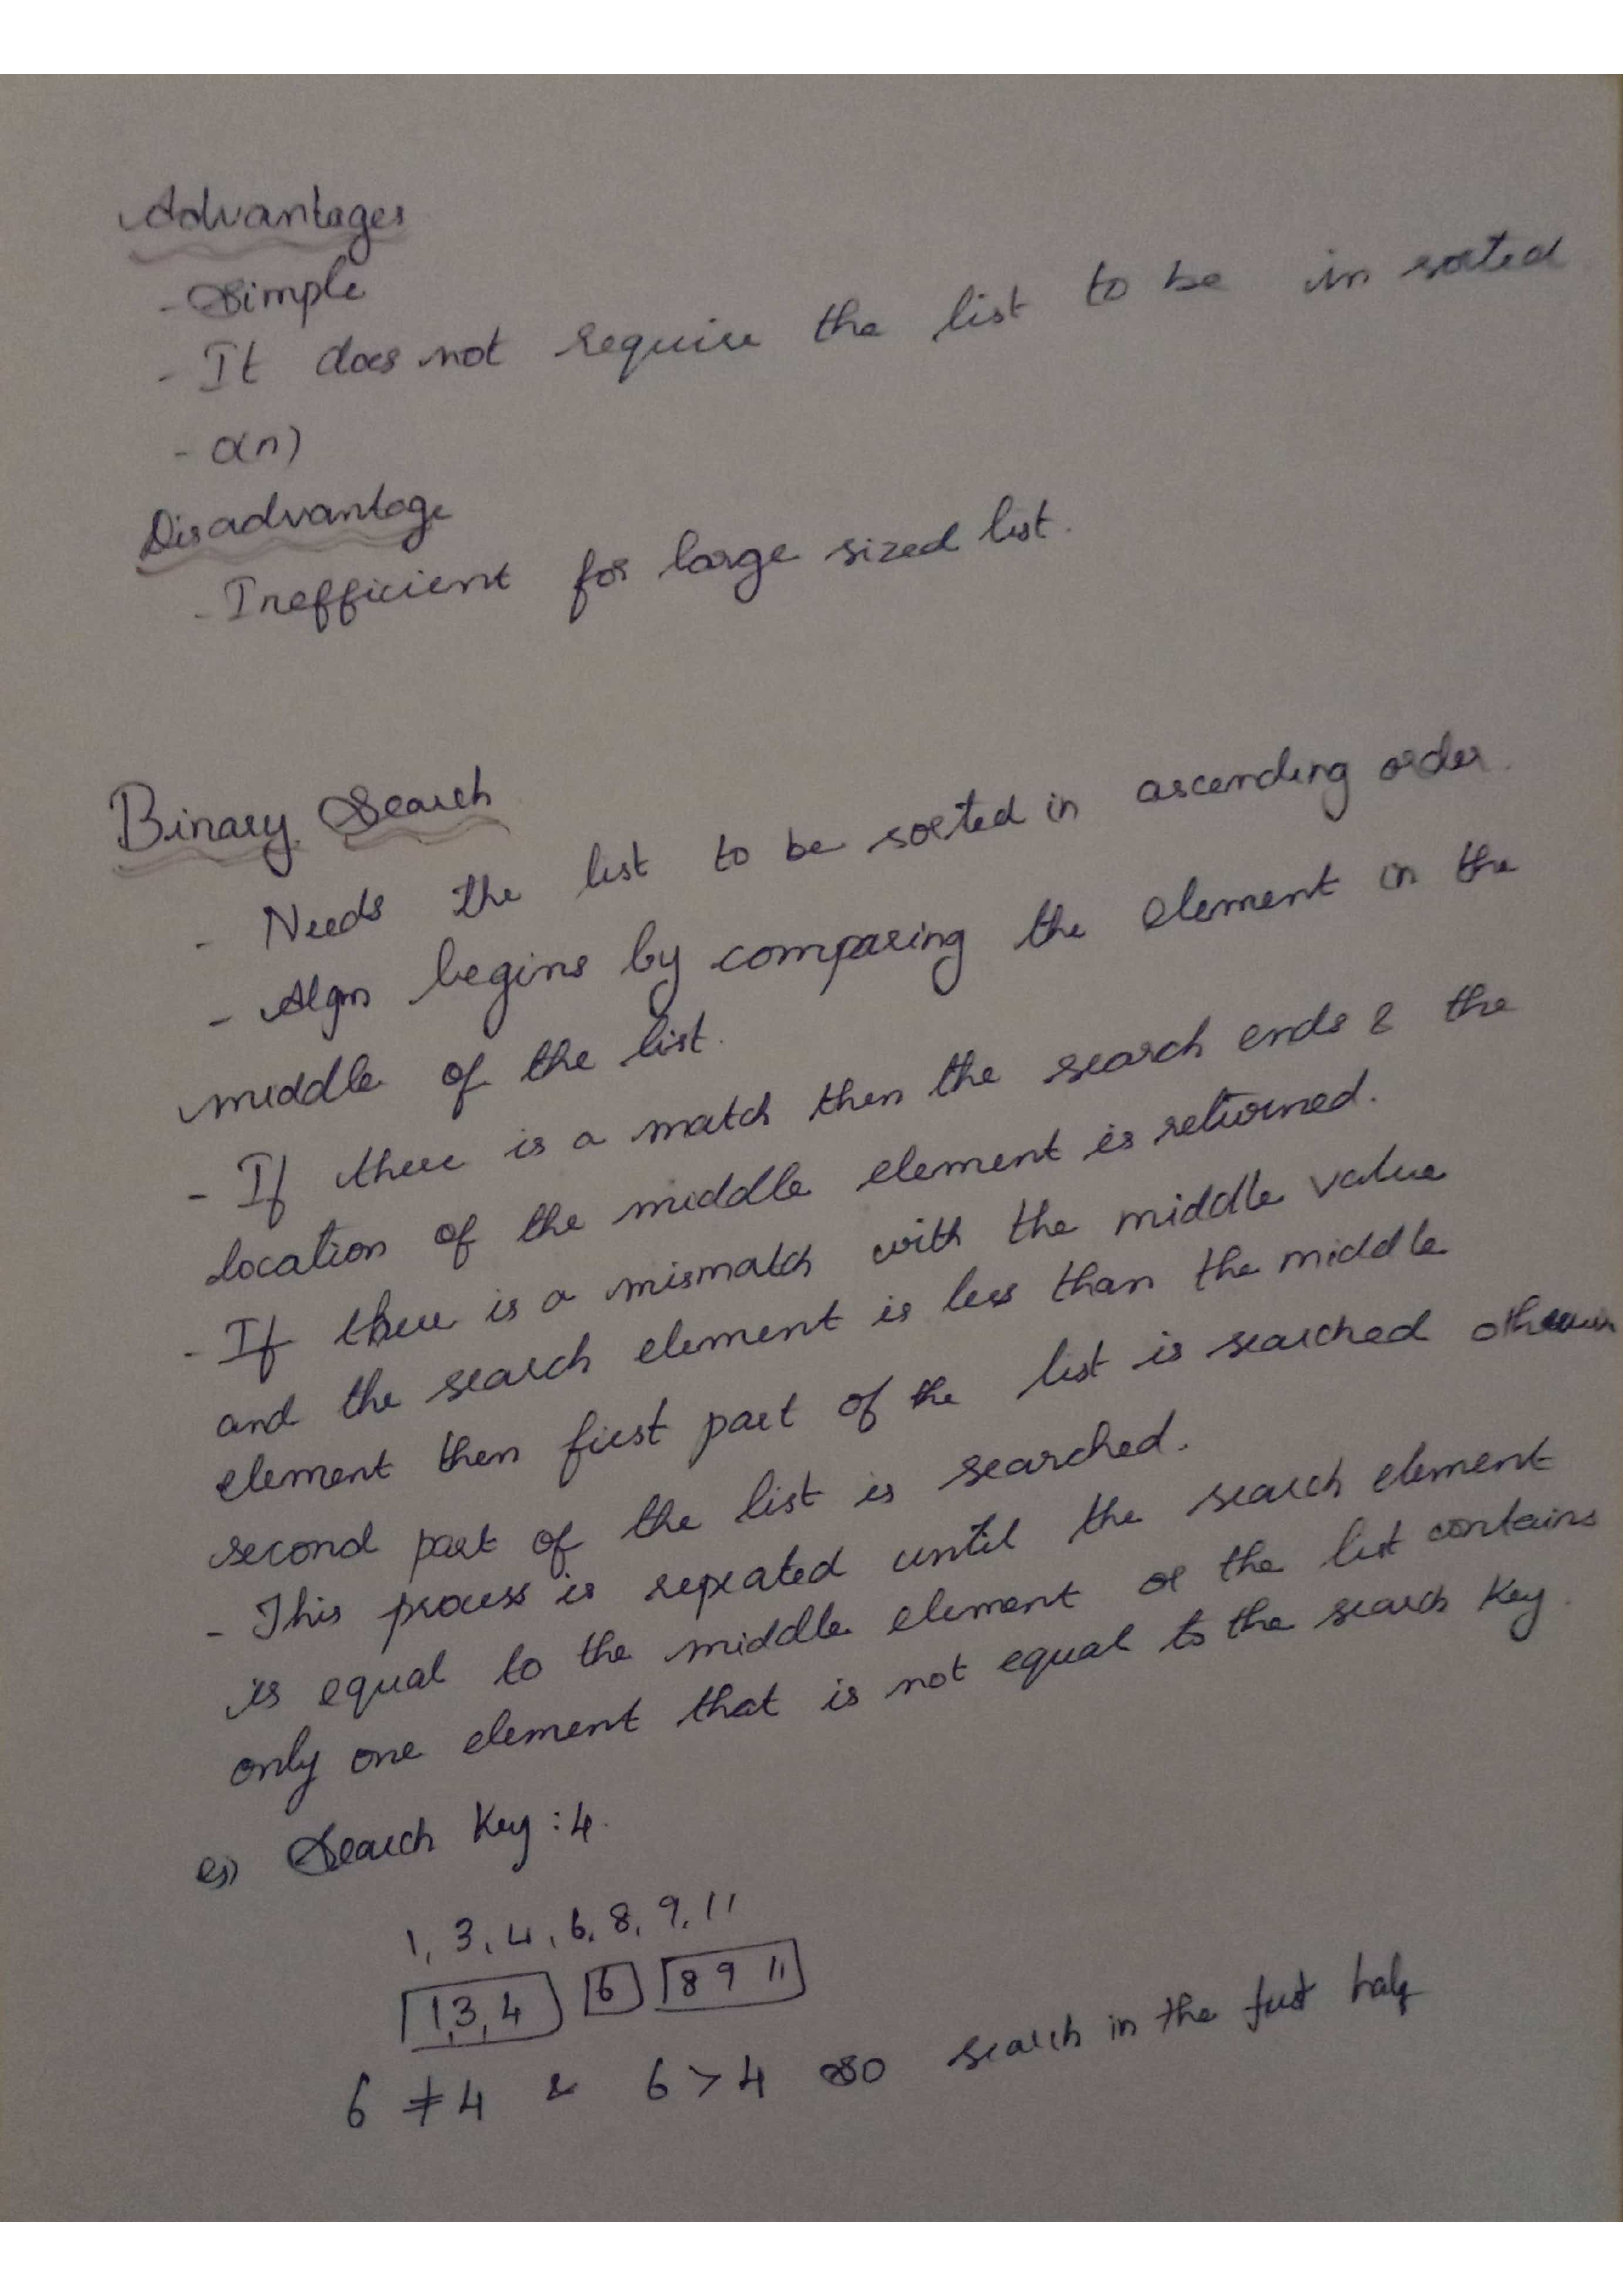 Advantages
- Simple
- It does not require the list to be in sorted
- O(n)
Disadvantage
- Inefficient for large sized list.
Binary Search
- Needs the list to be sorted in ascending order.
- Algm begins by comparing the element in the
middle of the list.
- If there is a match then the search ends & the
location of the middle element is returned.
- If there is a mismatch with the middle value
and the search element is less than the middle
element then first part of the list is searched otherwise
second part of the list is searched.
- This process is repeated until the search element
is equal to the middle element or the list contains
only one element that is not equal to the search key.
eg) Search Key : 4.
1, 3, 4, 6, 8, 9, 11
1,3,4 6 8 9 11
6 ≠ 4 & 6 > 4 so search in the first half